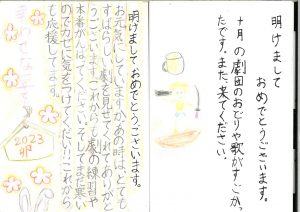 明けまして
おめでとうございます。
十月の劇団のおどりや歌がすごかっ
たです。また、来てください。
明けましておめでとうございます。
お元気にしていますか。あの時は、とても
すばらしい劇を見せてくれてありがと
うございます。これからも劇の練習や
本番がんばってください。そしてまだ寒い
のでカゼに気をつけてください!これから
も応援してます。
2023